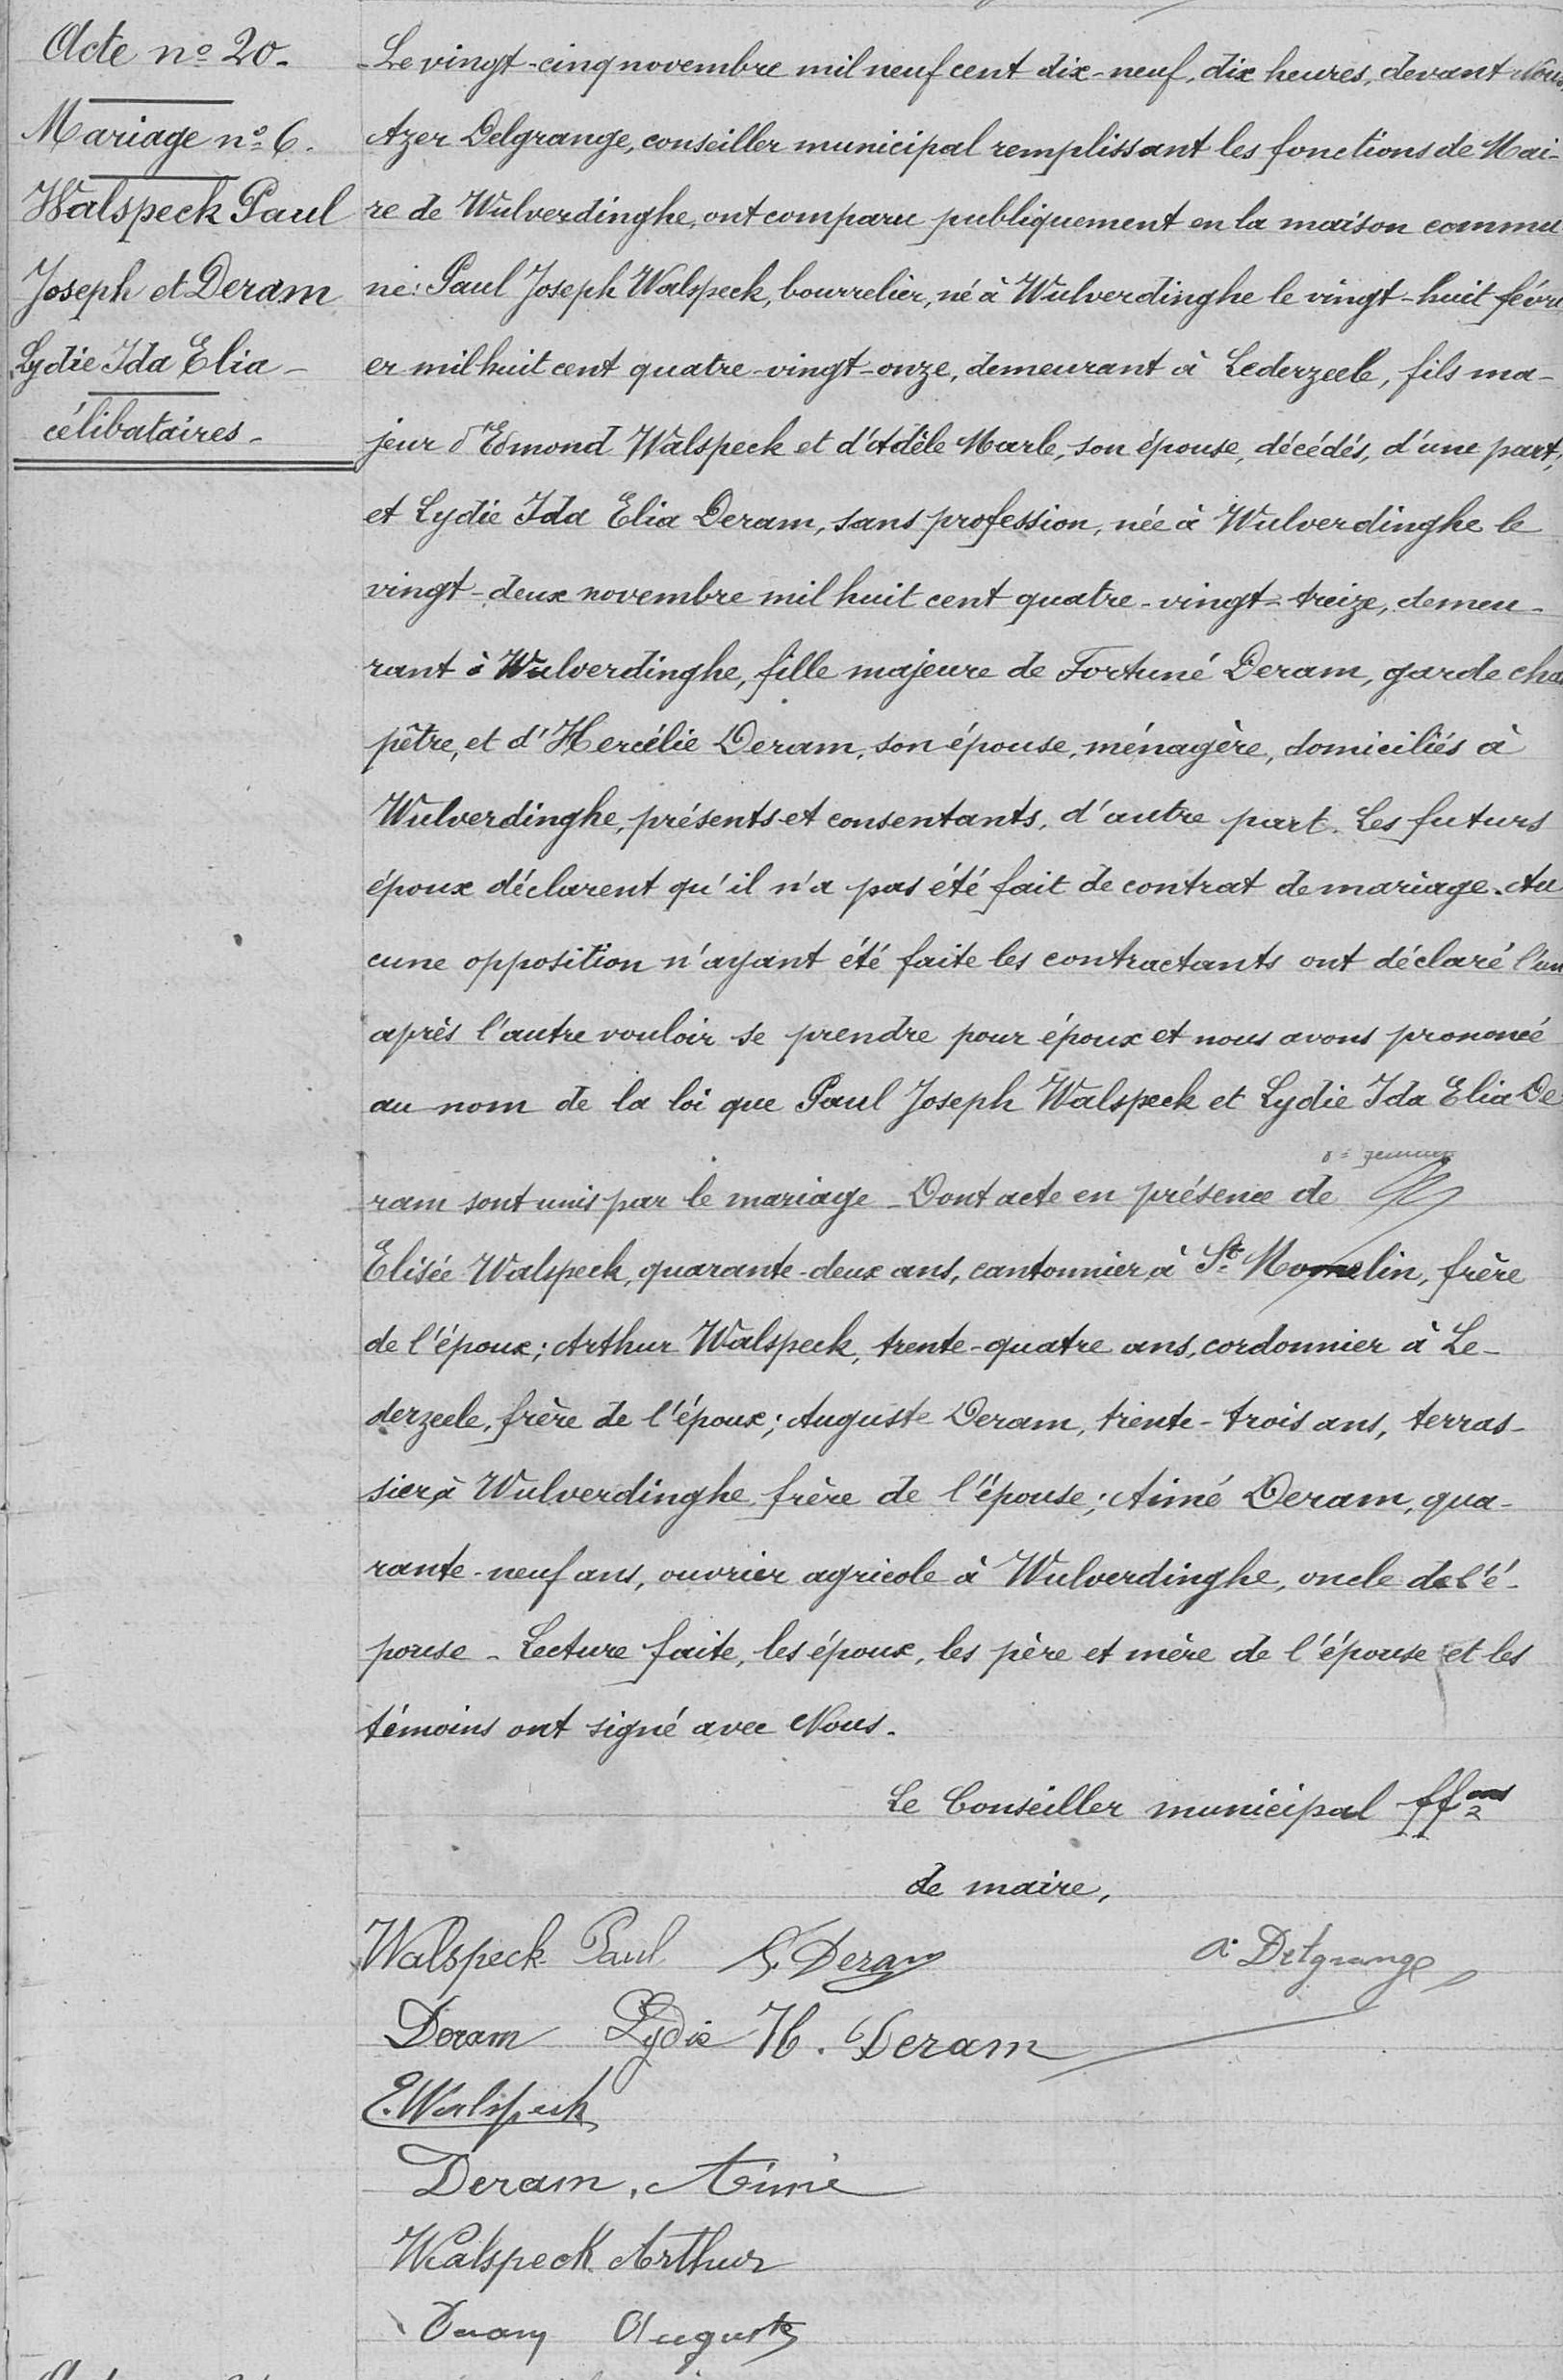 Acte nº 20.
Mariage nº 6.
Walspeck Paul
Joseph et Deram
Lydie Ida Elia -
célibataires -
Le vingt-cinq novembre mil neuf cent dix-neuf, dix heures, devant Nous,
Azer Delgrange, conseiller municipal remplissant les fonctions de Mai-
re de Wulverdinghe, ont comparu publiquement en la maison commu
ne: Paul Joseph Walspeck, bourrelier, né à Wulverdinghe le vingt-huit févri
er mil huit cent quatre-vingt-onze, demeurant à Lederzeele, fils ma-
jeur d'Edmond Walspeck et d'Adèle Marle, son épouse, décédés, d'une part;
et Lydie Ida Elia Deram, sans profession, née à Wulverdinghe le
vingt-deux novembre mil huit cent quatre-vingt-treize, demeu-
rant à Wulverdinghe, fille majeure de Fortuné Deram, garde cham
pêtre, et d'Hercélie Deram, son épouse, ménagère, domiciliés à
Wulverdinghe, présents et consentants, d'autre part. Les futurs
époux déclarent qu'il n'a pas été fait de contrat de mariage. Au
cune opposition n'ayant été faite les contractants ont déclaré l'un
après l'autre vouloir se prendre pour époux et nous avons prononcé
au nom de la loi que Paul Joseph Walspeck et Lydie Ida Elia De
ram sont unis par le mariage - Dont acte en présence de
Elisée Walspeck, quarante-deux ans, cantonnier à St Momelin, frère
de l'époux; Arthur Walspeck, trente-quatre ans, cordonnier à Le-
derzeele, frère de l'époux; Auguste Deram, trente-trois ans, terras-
sier à Wulverdinghe frère de l'épouse; Aimé Deram, qua-
rante-neuf ans, ouvrier agricole à Wulverdinghe, oncle de l'é-
pouse - Lecture faite, les époux, les père et mère de l'épouse et les
témoins ont signé avec Nous.
Le Conseiller municipal ff
de maire,
Walspeck Paul Deram A. Delgrange
Deram Lydie H. Deram
E. Walspeck
Deram, Aimé
Walspeck Arthur
Deram Auguste